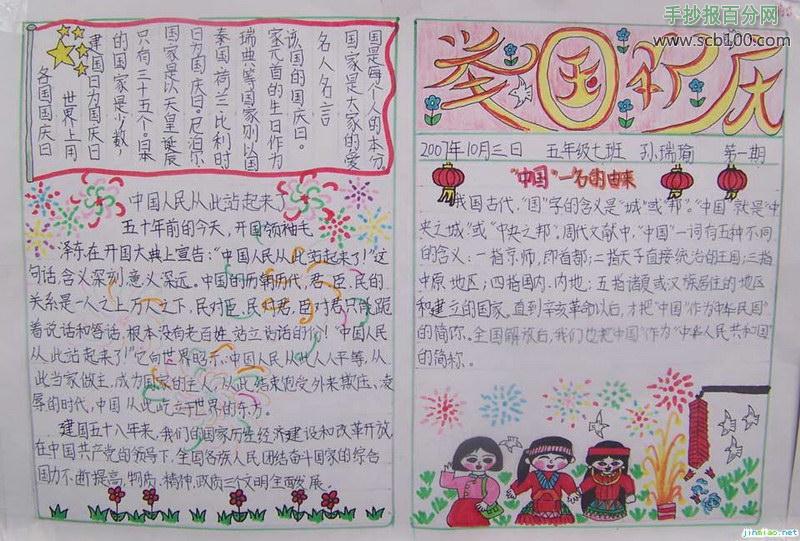 各国国庆日
世界上用
建国日为国庆日
的国家是少数，
只有三十五个。日本
国家是以天皇诞辰
日为国庆日。尼泊尔
泰国 荷兰 比利时
瑞典等国家则以国
家元首的生日作为
该国的国庆日。
名人名言
国家是大家的爱
国是每个人的本分
中国人民从此站起来了
五十年前的今天，开国领袖毛
泽东在开国大典上宣告：“中国人民从此站起来了！”这
句话，含义深刻，意义深远。中国的历朝历代，君、臣、民的
关系是一人之上万人之下，民对臣、民对君，臣对君只能跪
着说话和答话，根本没有老百姓站立说话的份！“中国人民
从此站起来了！”它向世界昭示：中国人民从此人人平等，从
此当家做主，成为国家的主人，从此结束饱受外来欺压、凌
辱的时代，中国从此屹立于世界的东方。
建国五十八年来，我们的国家历经经济建设和改革开放，
在中国共产党的领导下，全国各族人民团结奋斗国家的综合
国力不断提高，物质、精神、政质三个文明全面发展。
手抄报百分网
www.scb100.com
举国欢庆
2007年10月三日 五年级七班 孙瑞瑜 第一期
“中国”一名的由来
我国古代，“国”字的含义是“城”或“邦”。“中国”就是“中
央之城”或“中央之邦”。周代文献中，“中国”一词有五种不同
的含义：一指京师，即首都；二指天子直接统治的王国；三指
中原地区；四指国内、内地；五指诸夏或汉族居住的地区
和建立的国家。直到辛亥革命以自，才把“中国”作为“中华民国”
的简称。全国解放台，我们也把“中国”作为“中华人民共和国”
的简称。
jinmiao.net